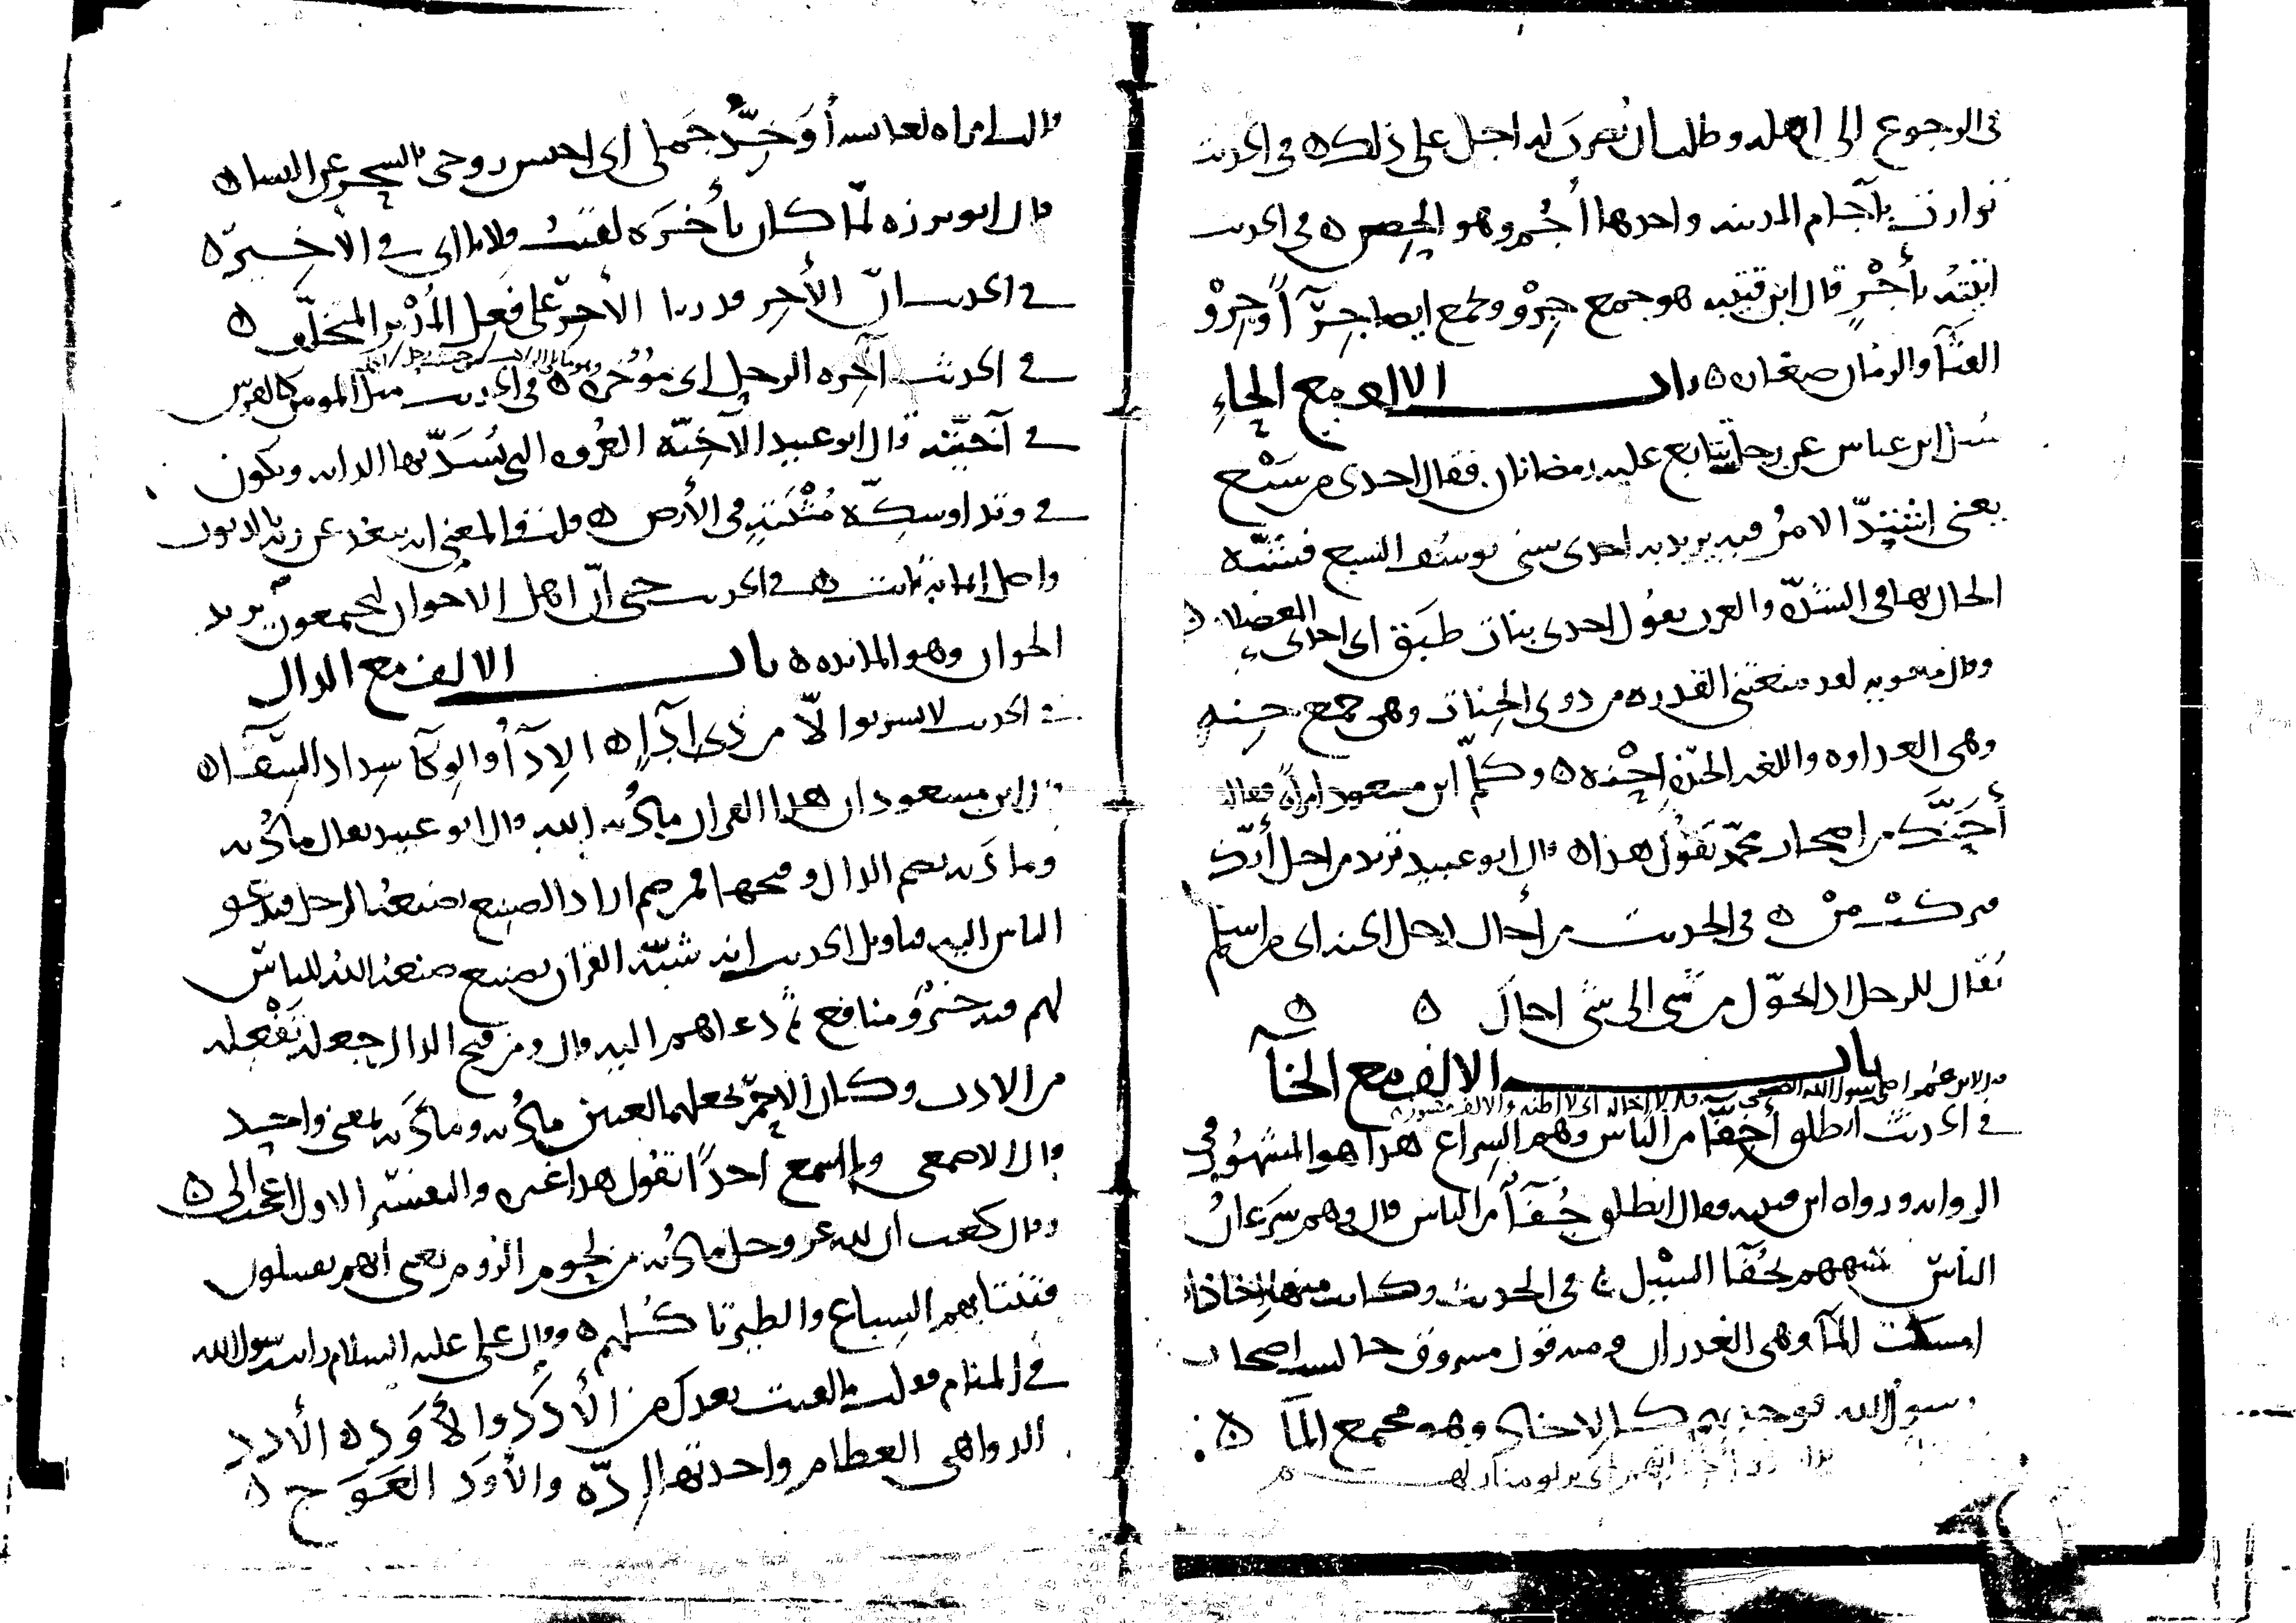 في الرجوع الى اهله وطلب ان يضرب له اجل على ذلك ه في الحديث
توارت بآجام المدينة واحدها أُجُم وهو الحصن ه في الحديث
اتيته بأَجْرٍ قال ابن قتيبه هو جمع جِرْو ويجمع ايضا جِرَآءً وجِرْو
القثآ والرمان صغاره ه باب الالف مع الحاءِ
سُئل ابن عباس عن رجل تتابع عليه رمضانان فقال احدى من سَبْع
يعني اشتدّ الامرُ فيه يريد به احدى سني يوسُف السبع فشبّه
الحال بها في الشدّه والعرب يقول احدى بنات طَبَق اى احدى المعضلات ه
وقال معويه لقد منعتني القدره من ذوي الحِنات وهى جمع حِنه
وهى العداوه واللغه الحِنّه إحْنه ه وكلّم ابن مسعود امرأة فقالت
أَجَنَّك من اصحاب محمّد تقول هذا ه قال ابو عبيد تريد من اجل أنّك
فتركت مِنْ ه في الحديث من أحال دخل الجنه اى من اسلم
يُقال للرجل اذا تحوّل من شي الى شي احال ه ه
باب الالف مع الخآ
في الحديث انطلق أخِفّآ من الناس وهم السِراع هذا هو المشهور في
الروايه ورواه ابن قتيبه وقال انطلق جُفَآءٌ من الناس قال وهم سَرَعانُ
الناس شبههم بجُفَآ السيْل ه في الحديث وكانت منها إخاذات
امسكت المآ وهى الغدران ومنه قول مسروق جالست اصحاب
رسول الله فوجدتهم كالاخاذ وهو مجمع المآ ه
قالت امراه لعايشه أُوَخِّذُ جَملي اى احبس زوجى بالسحر عن النسا ه
قال ابو برزه لمّا كان بأَخَرَه لقيتُ فلانا اى في الأخير ه
في الحديث انّ الأخِر قد زنا الأخِر على فعِل المُدْبر المتخلّف ه
في الحديث آخِره الرحل اى مؤُخّره ه في الحديث مثل المومن كالفرس
في آخيّته قال ابو عبيد الآخيّه العُروه التي يُشَدّ بها الدابه ويكون
في وتد او سِكّه مُثْبَتَةٍ في الأرض ه قلت والمعني انه يبعُد عن ربه بالذنوب
واصل ايمانه ثابت ه في الحديث حتى انّ اهل الاخوان ليجتمعون يريد
الخوان وهو المائده ه باب الالف مع الدال
في الحديث لا تشربوا الّا من ذى إدَآءٍ ه الإدَآءُ والوِكَآ سِداد السِّقَآ ه
قال ابن مسعود ان هذا القران مأدُبه الله قال ابو عبيد يقال مأدُبه
ومأدَبه بضم الدال وفتحها فمن ضم اراد الصنيع يصنعُه الرجل فيدعو
الناس اليه فتاويل الحديث انه شبّه القران بصنيع صنعه الله للناس
لهم فيه خيْرٌ ومنافع ثمّ دعاهم اليه قال ومن فتح الدال جعله مَفْعلَه
من الادب وكان الاحمر يجعلهما لغتين مأدُبه ومأدَبه بمعني واحد
قال الاصمعي ولم اسمع احدًا تقول هذا غيره والتفسير الاول اعجب الى ه
وقال كعب ان لله عز وجل مأدُبه من لحوم الروم يعنى انهم يقتلون
فتنتابهم السباع والطير تاكُلهم ه وقال على عليه السلام رايت رسول الله
في المنام فقلت ما لقيت بعدك من الأِدَدِ والأَوَد ه الأدد
الدواهى العظام واحدتها إدّه والأوَد العَوَج ه